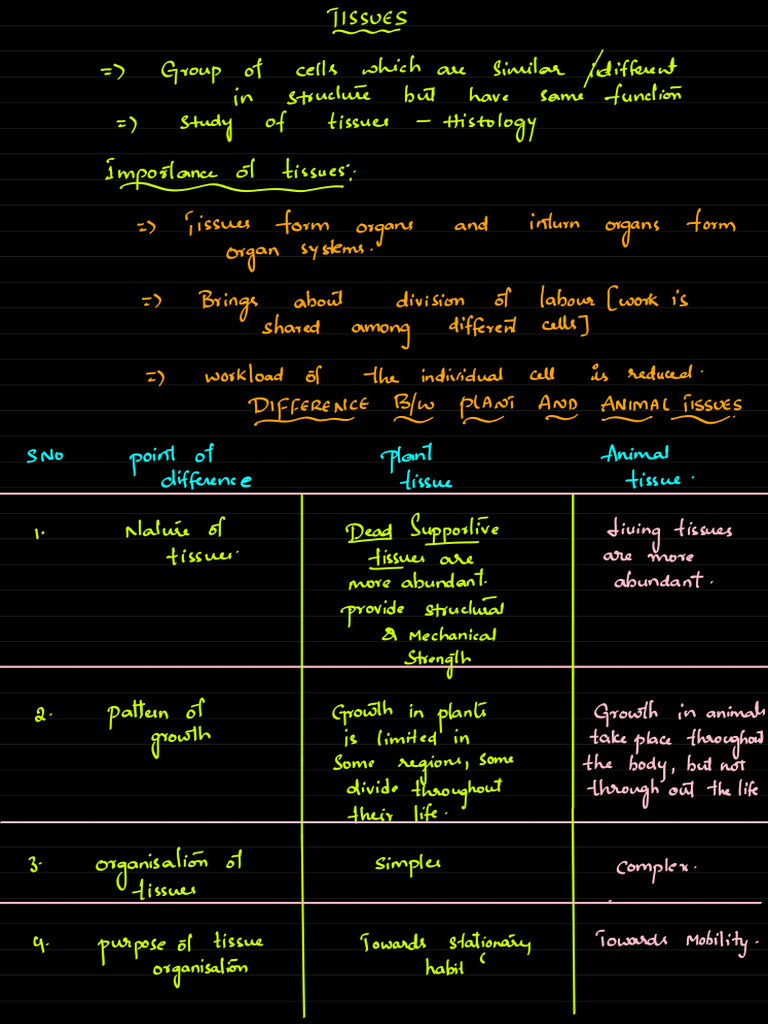 TISSUES
=> Group of cells which are similar /different
in structure but have same function
=> Study of tissues - Histology
Importance of tissues:
=> Tissues form organs and inturn organs form
organ systems.
=> Brings about division of labour [work is
shared among different cells]
=> workload of the individual cell is reduced.
DIFFERENCE B/W PLANT AND ANIMAL TISSUES
S NO point of difference Plant tissue Animal tissue.
1. Nature of tissues.
Dead Supportive
tissues are
more abundant.
provide structural
& Mechanical
Strength
Living tissues
are more
abundant.
2. pattern of
growth
Growth in plants
is limited in
Some regions, some
divide throughout
their life.
Growth in animals
take place throughout
the body, but not
through out the life
3. organisation of
tissues
Simples
Complex.
4. purpose of tissue
organisation
Towards stationary
habit
Towards Mobility.